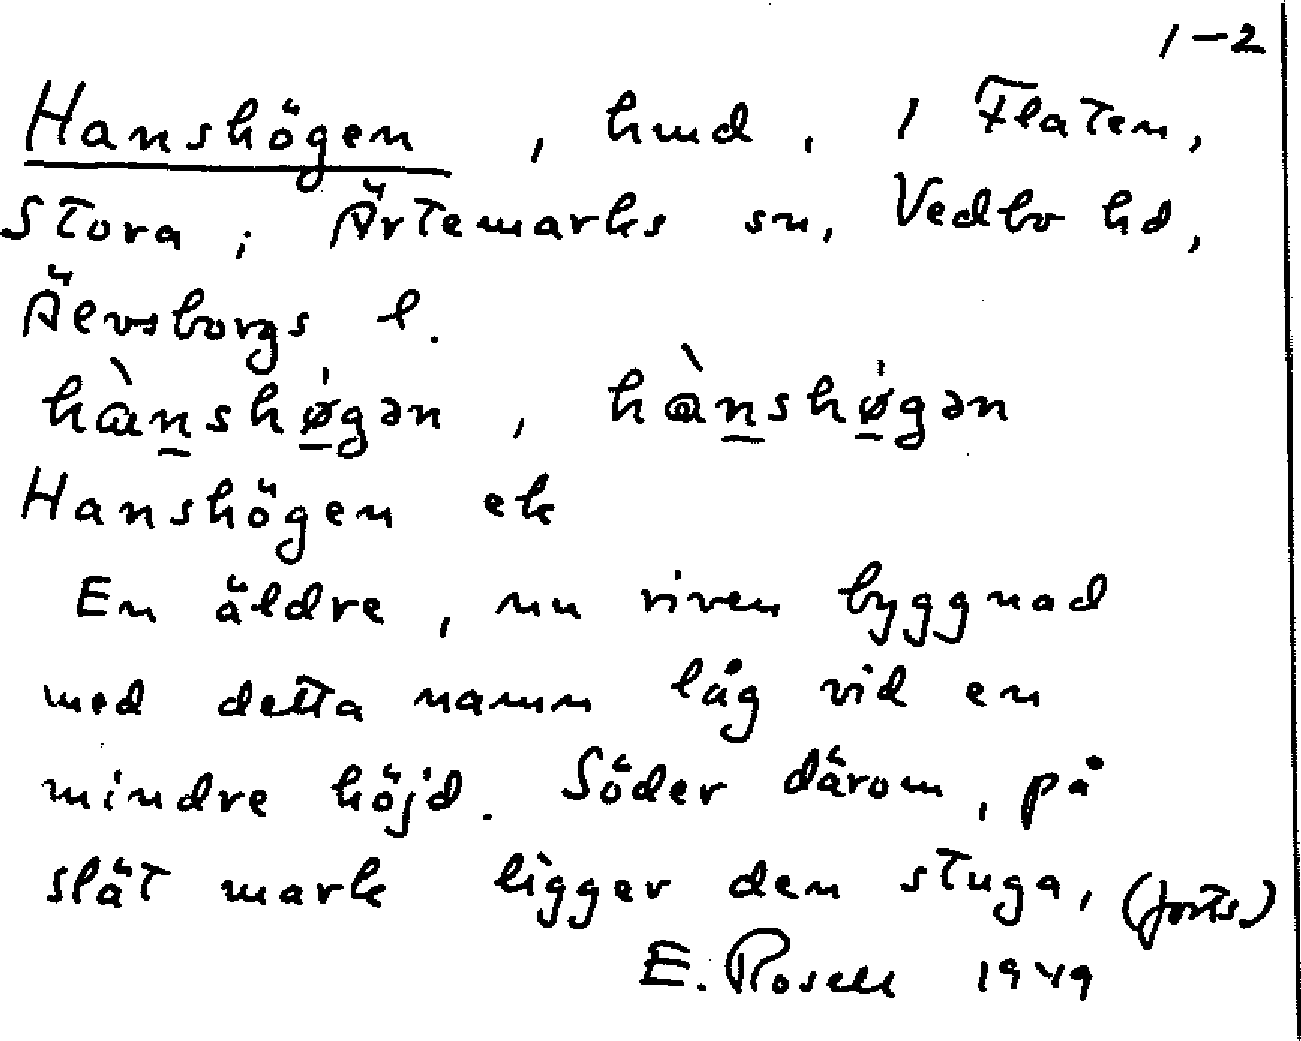 1-2
Hanshögen, hmd. 1 Flaten,
Stora; Ärtemarks sn, Vedbo hd,
Älvsborgs l.
hànshø̀gən, hànshø̀gən
Hanshögen ek
En äldre, nu riven byggnad
med detta namn låg vid en
mindre höjd. Söder därom, på
slät mark ligger den stuga, (forts.)
E. Rosell 1949